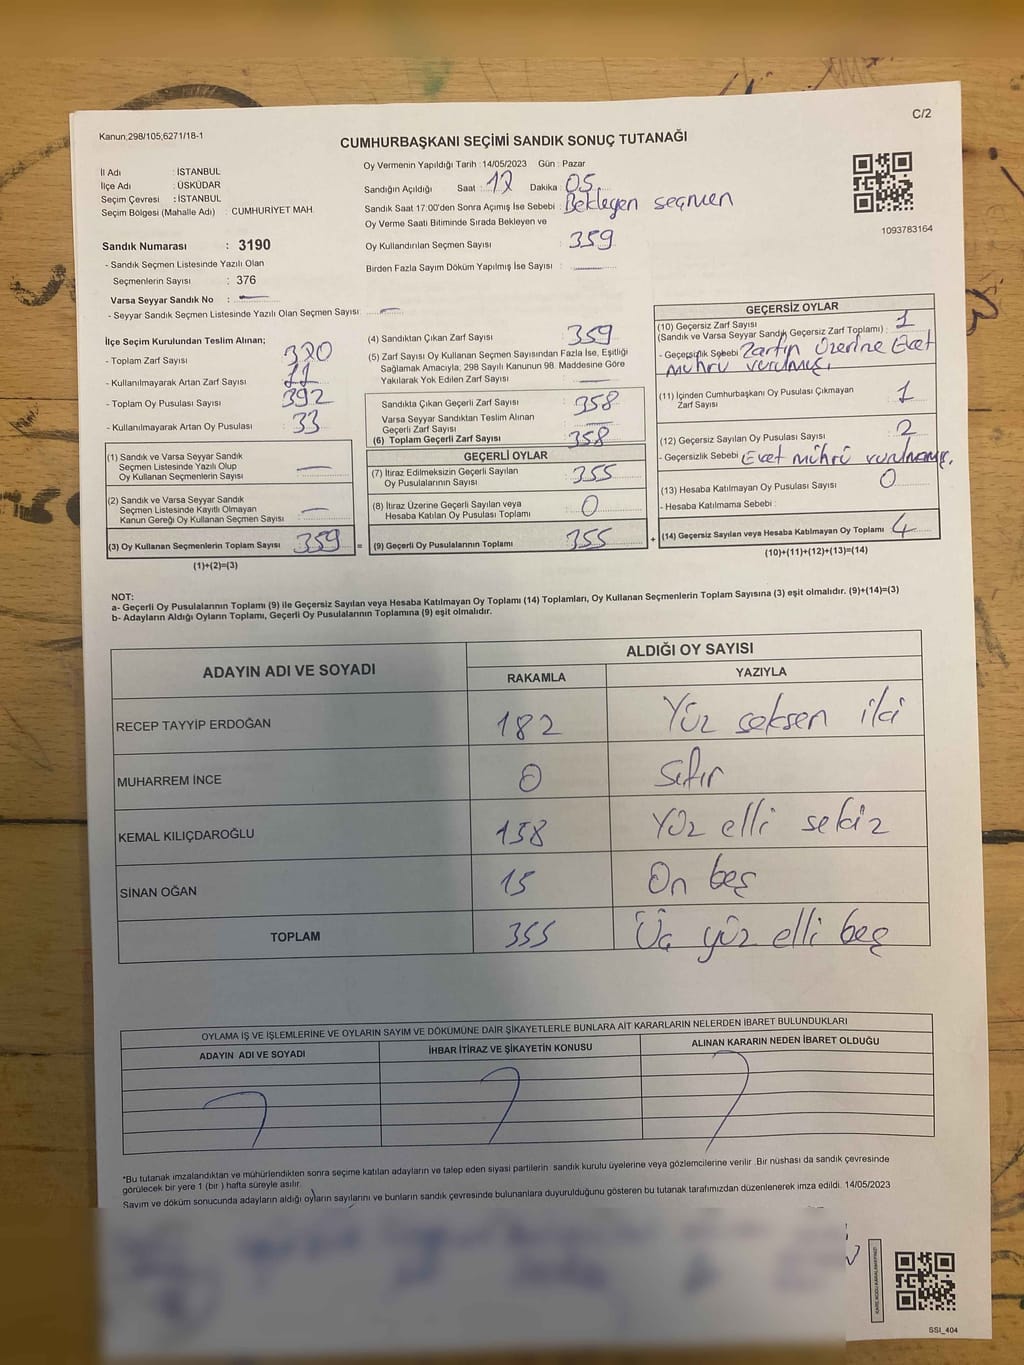 Kanun;298/105;6271/18-1
C/2
CUMHURBAŞKANI SEÇİMİ SANDIK SONUÇ TUTANAĞI
İl Adı : İSTANBUL
İlçe Adı : ÜSKÜDAR
Seçim Çevresi : İSTANBUL
Seçim Bölgesi (Mahalle Adı) : CUMHURİYET MAH.
Sandık Numarası : 3190
- Sandık Seçmen Listesinde Yazılı Olan
Seçmenlerin Sayısı : 376
Varsa Seyyar Sandık No : —
- Seyyar Sandık Seçmen Listesinde Yazılı Olan Seçmen Sayısı: —
Oy Vermenin Yapıldığı Tarih : 14/05/2023 Gün : Pazar
Sandığın Açıldığı Saat : 17 Dakika : 05
Sandık Saat 17:00'den Sonra Açımış İse Sebebi : Bekleyen seçmen
Oy Verme Saati Bitiminde Sırada Bekleyen ve
Oy Kullandırılan Seçmen Sayısı : 359
Birden Fazla Sayım Döküm Yapılmış İse Sayısı : —
1093783164
İlçe Seçim Kurulundan Teslim Alınan;
- Toplam Zarf Sayısı : 370
- Kullanılmayarak Artan Zarf Sayısı : 11
- Toplam Oy Pusulası Sayısı : 392
- Kullanılmayarak Artan Oy Pusulası : 33
(1) Sandık ve Varsa Seyyar Sandık
Seçmen Listesinde Yazılı Olup
Oy Kullanan Seçmenlerin Sayısı : —
(2) Sandık ve Varsa Seyyar Sandık
Seçmen Listesinde Kayıtlı Olmayan
Kanun Gereği Oy Kullanan Seçmen Sayısı : —
(3) Oy Kullanan Seçmenlerin Toplam Sayısı : 359 =
(1)+(2)=(3)
(4) Sandıktan Çıkan Zarf Sayısı : 359
(5) Zarf Sayısı Oy Kullanan Seçmen Sayısından Fazla İse, Eşitliği
Sağlamak Amacıyla, 298 Sayılı Kanunun 98. Maddesine Göre
Yakılarak Yok Edilen Zarf Sayısı : —
Sandıkta Çıkan Geçerli Zarf Sayısı : 358
Varsa Seyyar Sandıktan Teslim Alınan
Geçerli Zarf Sayısı : —
(6) Toplam Geçerli Zarf Sayısı : 358
GEÇERLİ OYLAR
(7) İtiraz Edilmeksizin Geçerli Sayılan
Oy Pusulalarının Sayısı : 355
(8) İtiraz Üzerine Geçerli Sayılan veya
Hesaba Katılan Oy Pusulası Toplamı : 0
(9) Geçerli Oy Pusulalarının Toplamı : 355 +
GEÇERSİZ OYLAR
(10) Geçersiz Zarf Sayısı
(Sandık ve Varsa Seyyar Sandık Geçersiz Zarf Toplamı) : 1
- Geçersizlik Sebebi : Zarfın Üzerine Evet
mührü vurulmuş.
(11) İçinden Cumhurbaşkanı Oy Pusulası Çıkmayan
Zarf Sayısı : 1
(12) Geçersiz Sayılan Oy Pusulası Sayısı : 2
- Geçersizlik Sebebi : Evet mührü vurulmamış.
(13) Hesaba Katılmayan Oy Pusulası Sayısı : 0
- Hesaba Katılmama Sebebi :
(14) Geçersiz Sayılan veya Hesaba Katılmayan Oy Toplamı : 4
(10)+(11)+(12)+(13)=(14)
NOT:
a- Geçerli Oy Pusulalarının Toplamı (9) ile Geçersiz Sayılan veya Hesaba Katılmayan Oy Toplamı (14) Toplamları, Oy Kullanan Seçmenlerin Toplam Sayısına (3) eşit olmalıdır. (9)+(14)=(3)
b- Adayların Aldığı Oyların Toplamı, Geçerli Oy Pusulalarının Toplamına (9) eşit olmalıdır.
ADAYIN ADI VE SOYADI
ALDIĞI OY SAYISI
RAKAMLA YAZIYLA
RECEP TAYYİP ERDOĞAN 182 Yüz seksen iki
MUHARREM İNCE 0 Sıfır
KEMAL KILIÇDAROĞLU 158 Yüz elli sekiz
SİNAN OĞAN 15 On beş
TOPLAM 355 Üç yüz elli beş
OYLAMA İŞ VE İŞLEMLERİNE VE OYLARIN SAYIM VE DÖKÜMÜNE DAİR ŞİKAYETLERLE BUNLARA AİT KARARLARIN NELERDEN İBARET BULUNDUKLARI
ADAYIN ADI VE SOYADI İHBAR İTİRAZ VE ŞİKAYETİN KONUSU ALINAN KARARIN NEDEN İBARET OLDUĞU
*Bu tutanak imzalandıktan ve mühürlendikten sonra seçime katılan adayların ve talep eden siyasi partilerin sandık kurulu üyelerine veya gözlemcilerine verilir. Bir nüshası da sandık çevresinde
görülecek bir yere 1 (bir) hafta süreyle asılır.
Sayım ve döküm sonucunda adayların aldığı oyların sayılarını ve bunların sandık çevresinde bulunanlara duyurulduğunu gösteren bu tutanak tarafımızdan düzenlenerek imza edildi. 14/05/2023
SSİ_404